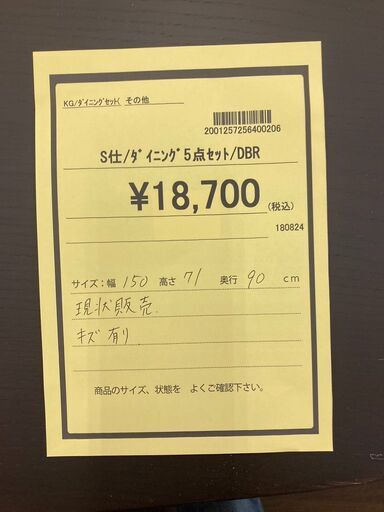 KG/ﾀﾞｲﾆﾝｸﾞｾｯﾄ( その他
2001257256400206
S仕/ﾀﾞｲﾆﾝｸﾞ5点ｾｯﾄ/DBR
¥18,700
(税込)
180824
サイズ:幅 150 高さ 71 奥行 90 cm
現状販売.
キズ有り.
商品のサイズ、状態を よくご確認下さい。